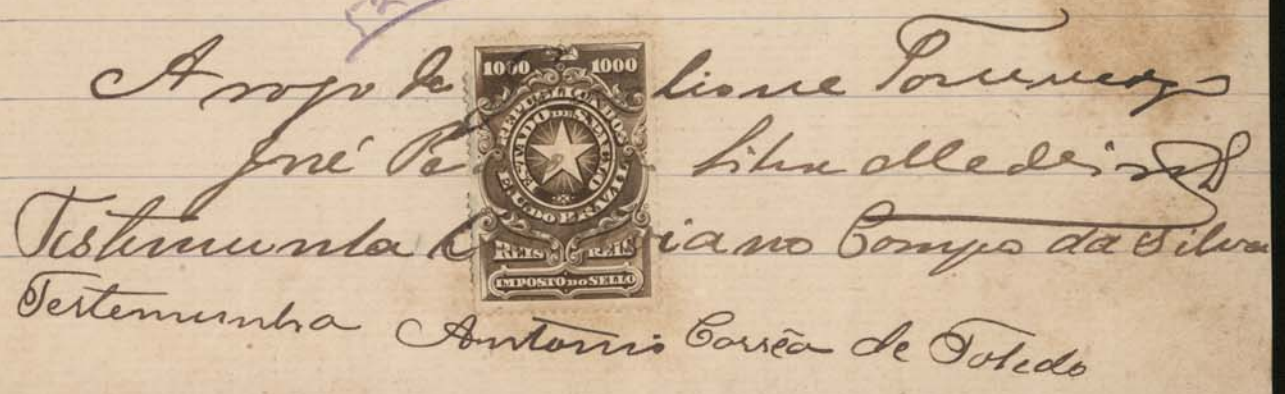 A rogo de lione
José Pe Silva Medeiros
Testemunha iano Campo da Silva
Testemunha Antonio Corrêa de Toledo
1000 1000
REPUBLICA DOS E. U. DO BRAZIL
ESTADO DE S. PAULO
REIS REIS
IMPOSTO DO SELLO